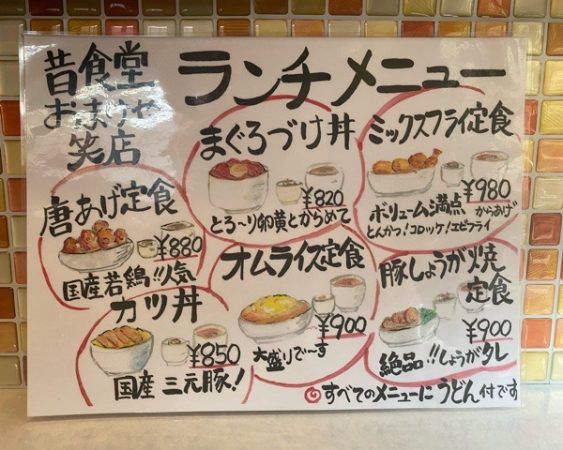 昔食堂
おまけや
笑店
ランチメニュー
まぐろづけ丼
¥820
とろ〜り卵黄とからめて
ミックスフライ定食
¥980
ボリューム満点 からあげ
とんかつ!コロッケ!エビフライ
唐あげ定食
¥880
国産若鶏!!人気
オムライス定食
¥900
大盛りでーす
豚しょうが焼
定食
¥900
絶品!!しょうがタレ
カツ丼
¥850
国産 三元豚!
すべてのメニューにうどん付です